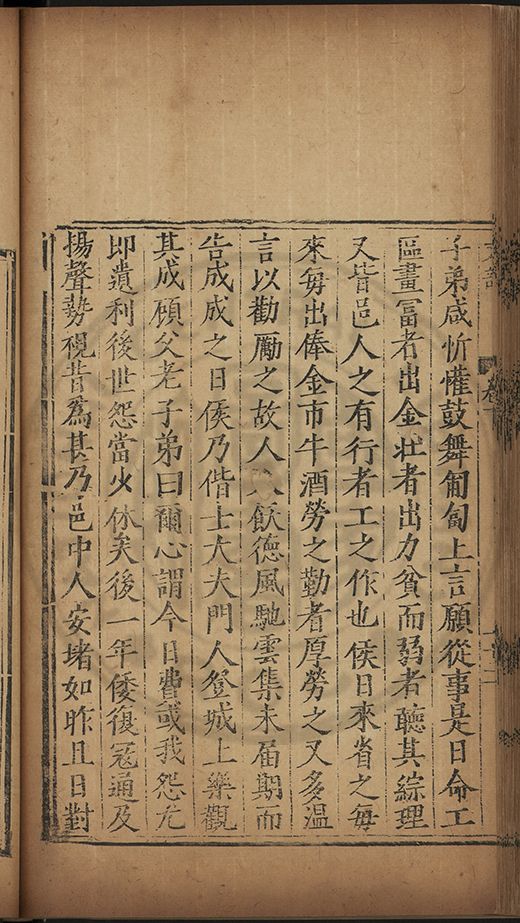 子弟咸忻懽鼓舞匍匐上言願從事是日命工
區畫冨者出金壯者出力貧而弱者聽其綜理
又皆邑人之有行者工之作也侯日來省之每
來每出俸金市牛酒勞之勤者厚勞之又多溫
言以勸勵之故人人飲德風馳雲集未届期而
告成成之日侯乃偕士大夫門人登城上樂觀
其成頋父老子弟曰爾心謂今日費或我怨尤
即遺利後世怨當火休矣後一年倭復宼通及
揚聲勢視昔為甚乃邑中人安堵如昨且日對
卷
十二